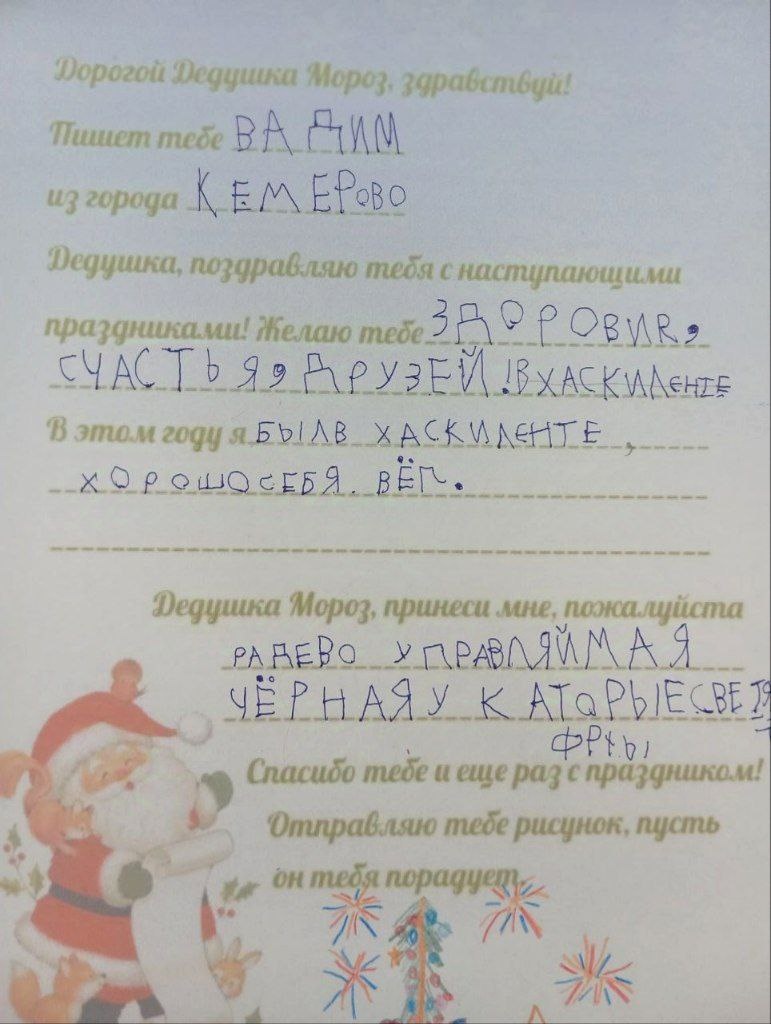 Дорогой Дедушка Мороз, здравствуй!
Пишет тебе ВАДИМ
из города КЕМЕРОВО
Дедушка, поздравляю тебя с наступающими
праздниками! Желаю тебе ЗДОРОВИЯ,
СЧАСТЬЯ, ДРУЗЕЙ! В ХАСКИЛЕНТЕ
В этом году я БЫЛ В ХАСКИЛЕНТЕ,
ХОРОШО СЕБЯ. ВЁЛ.
Дедушка Мороз, принеси мне, пожалуйста
РАДЕВО УПРАВЛЯЙМАЯ
ЧЁРНАЯ У КАТОРЫЕ СВЕТЯ
ФРЫ
Спасибо тебе и еще раз с праздником!
Отправляю тебе рисунок, пусть
он тебя порадует.